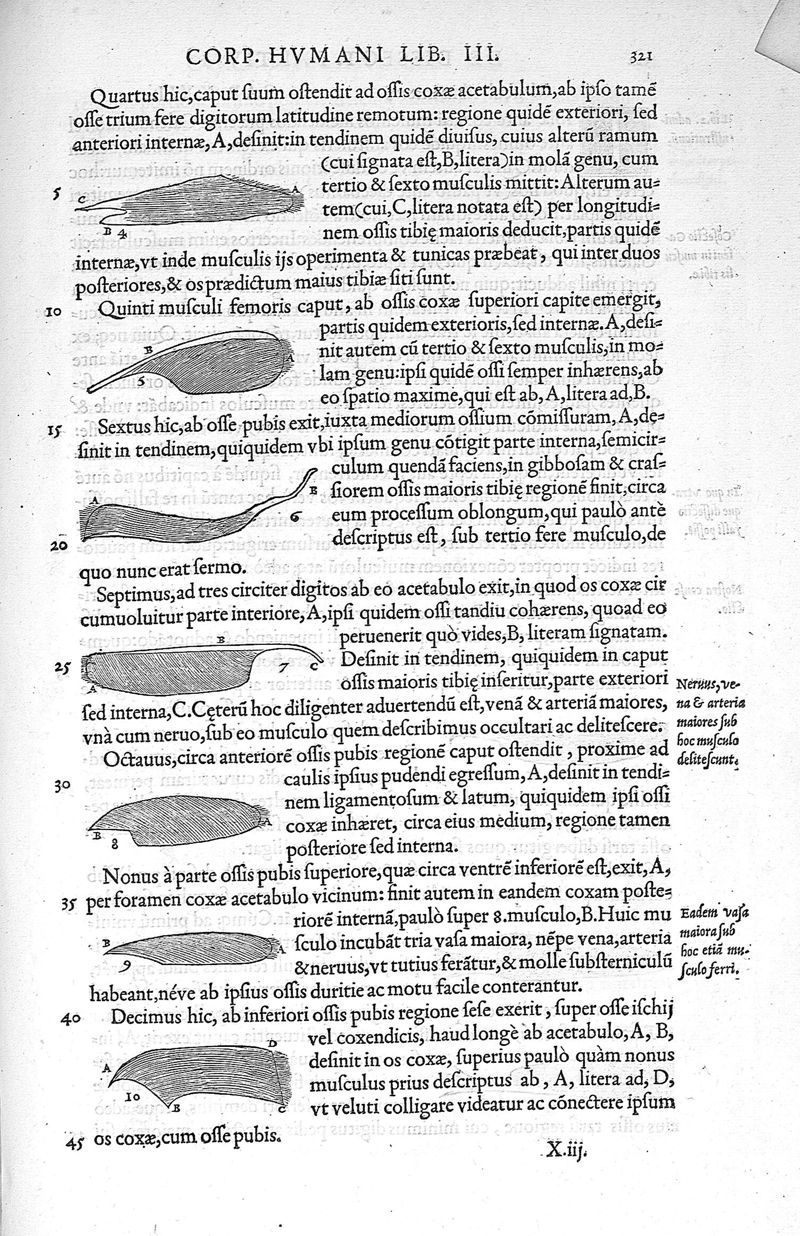 CORP. HVMANI LIB. III. 321
Quartus hic,caput ſuum oſtendit ad oſſis coxæ acetabulum,ab ipſo tamē
oſſe trium fere digitorum latitudine remotum: regione quidē exteriori, ſed
anteriori internæ, A, deſinit:in tendinem quidē diuiſus, cuius alterū ramum
(cui ſignata eſt,B,litera)in molā genu, cum
5 tertio & ſexto muſculis mittit: Alterum au-
tem(cui,C,litera notata eſt) per longitudi-
nem oſſis tibię maioris deducit,partis quidē
C A B 4
internæ,vt inde muſculis ijs operimenta & tunicas præbeat, qui inter duos
poſteriores,& os prædictum maius tibiæ ſiti ſunt.
10 Quinti muſculi femoris caput, ab oſſis coxæ ſuperiori capite emergit,
partis quidem exterioris,ſed internæ. A,deſi-
nit autem cū tertio & ſexto muſculis,in mo-
lam genu:ipſi quidē oſſi ſemper inhærens,ab
eo ſpatio maxime,qui eſt ab, A,litera ad,B.
B A 5
15 Sextus hic,ab oſſe pubis exit,iuxta mediorum oſſium cōmiſſuram, A,de-
ſinit in tendinem,quiquidem vbi ipſum genu cōtigit parte interna,ſemicir-
culum quendā faciens,in gibboſam & craſ-
ſiorem oſſis maioris tibię regionē finit,circa
eum proceſſum oblongum,qui paulò antè
20 deſcriptus eſt, ſub tertio fere muſculo,de
A B 6
quo nunc erat ſermo.
Septimus,ad tres circiter digitos ab eo acetabulo exit,in quod os coxæ cir
cumuoluitur parte interiore, A,ipſi quidem oſſi tandiu cohærens, quoad eo
peruenerit quò vides,B, literam ſignatam.
25 Deſinit in tendinem, quiquidem in caput
oſſis maioris tibię inſeritur,parte exteriori
B 7 C A
ſed interna,C.Cęterū hoc diligenter aduertendū eſt,venā & arteriā maiores,
vnà cum neruo,ſub eo muſculo quem deſcribimus occultari ac deliteſcere.
Neruus,ve-
na & arteria
maiores ſub
hoc muſculo
deliteſcunt.
Octauus,circa anteriorē oſſis pubis regionē caput oſtendit, proxime ad
30 caulis ipſius pudendi egreſſum, A,deſinit in tendi-
nem ligamentoſum & latum, quiquidem ipſi oſſi
coxæ inhæret, circa eius medium, regione tamen
poſteriore ſed interna.
A B 8
Nonus à parte oſſis pubis ſuperiore,quæ circa ventrē inferiorē eſt,exit, A,
35 per foramen coxæ acetabulo vicinum: finit autem in eandem coxam poſte-
riorē internā,paulò ſuper 8.muſculo,B.Huic mu
ſculo incubāt tria vaſa maiora, nēpe vena,arteria
& neruus,vt tutius ferātur,& molle ſubſterniculū
B A 9
Eadem vaſa
maiora ſub
hoc etiā mu-
ſculo ferri.
habeant,néve ab ipſius oſſis duritie ac motu facile conterantur.
40 Decimus hic, ab inferiori oſſis pubis regione ſeſe exerit, ſuper oſſe iſchij
vel coxendicis, haud longè ab acetabulo, A, B,
definit in os coxæ, ſuperius paulò quàm nonus
muſculus prius deſcriptus ab, A, litera ad, D,
vt veluti colligare videatur ac cōnectere ipſum
D A 10 B C
45 os coxæ,cum oſſe pubis.
X.iij.